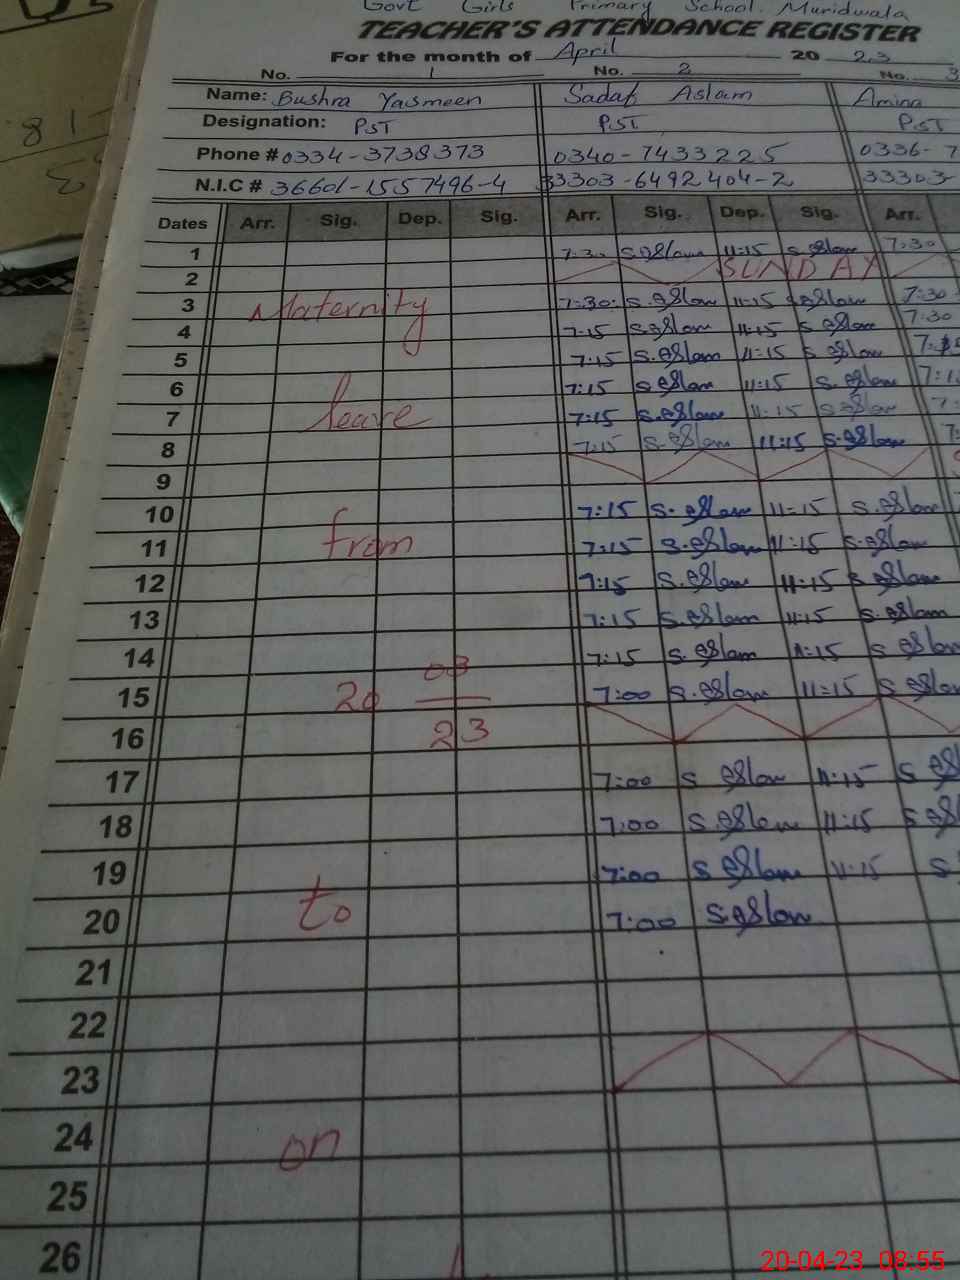 Govt Girls Primary School. Muridwala
TEACHER'S ATTENDANCE REGISTER
For the month of April 20 23
No. 1 No. 2 No. 3
Name: Bushra Yasmeen Sadaf Aslam Amina
Designation: PST PST PST
Phone # 0334-3738373 0340-7433225 0336-7
N.I.C # 36601-1557496-4 33303-6492404-2 33303-
Dates Arr. Sig. Dep. Sig. Arr. Sig. Dep. Sig. Arr.
1 7:30 S.aslam 11:15 S.aslam 7:30
2 SUNDAY
3 Maternity 7:30 S.aslam 11:15 S.aslam 7:30
4 7:15 S.aslam 11:15 S.aslam 7:30
5 7:15 S.aslam 11:15 S.aslam
6 7:15 S.aslam 11:15 S.aslam 7:1
7 leave 7:15 S.aslam 11:15 S.aslam 7:
8 7:15 S.aslam 11:15 S.aslam 7:
9
10 7:15 S.aslam 11:15 S.aslam
11 from 7:15 S.aslam 11:15 S.aslam
12 7:15 S.aslam 11:15 S.aslam
13 7:15 S.aslam 11:15 S.aslam
14 7:15 S.aslam 11:15 S.aslam
15 20 03 7:00 S.aslam 11:15 S.aslam
16 23
17 7:00 S aslam 11:15 S as
18 7:00 S.aslam 11:15 S.as
19 7:00 S aslam 11:15 S
20 to 7:00 S.aslam
21
22
23
24 on
25
26
20-04-23 08:55